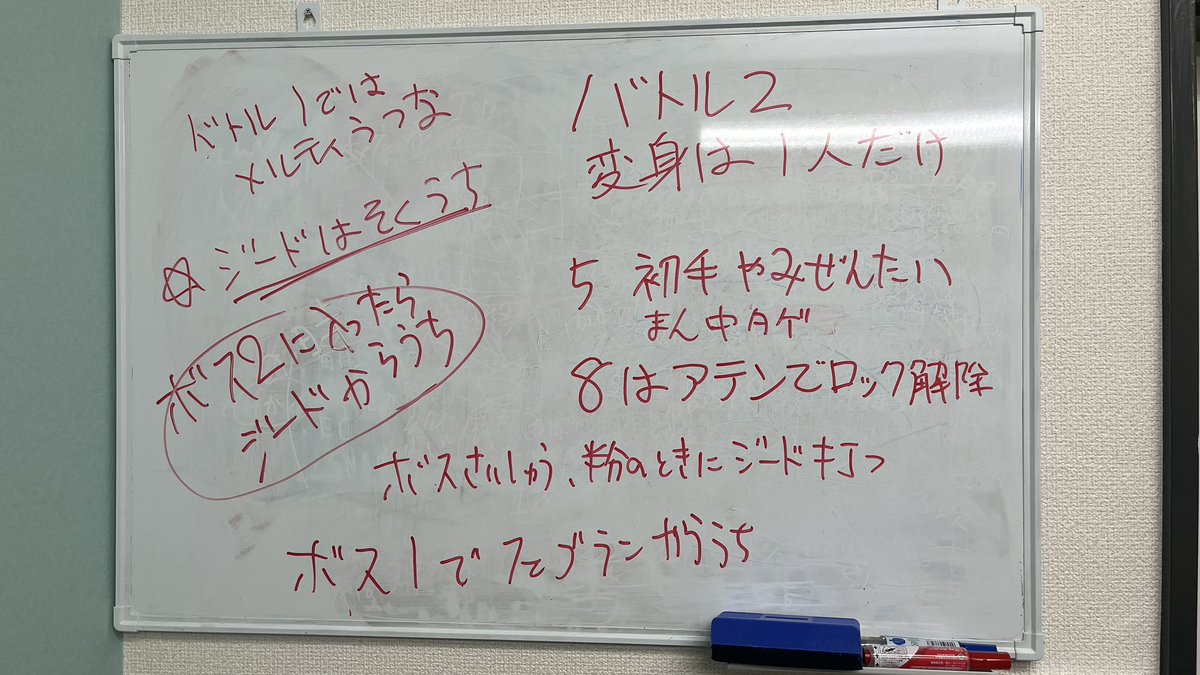 バトル1では
メルティうつな
☆ジードはそくうち
ボス2に入ったら
ジードからうち
バトル2
変身は1人だけ
5 初手やみぜんたい
まん中タゲ
8はアテンでロック解除
ボスさいしゅう、粉のときにジード打つ
ボス1でフェブランからうち